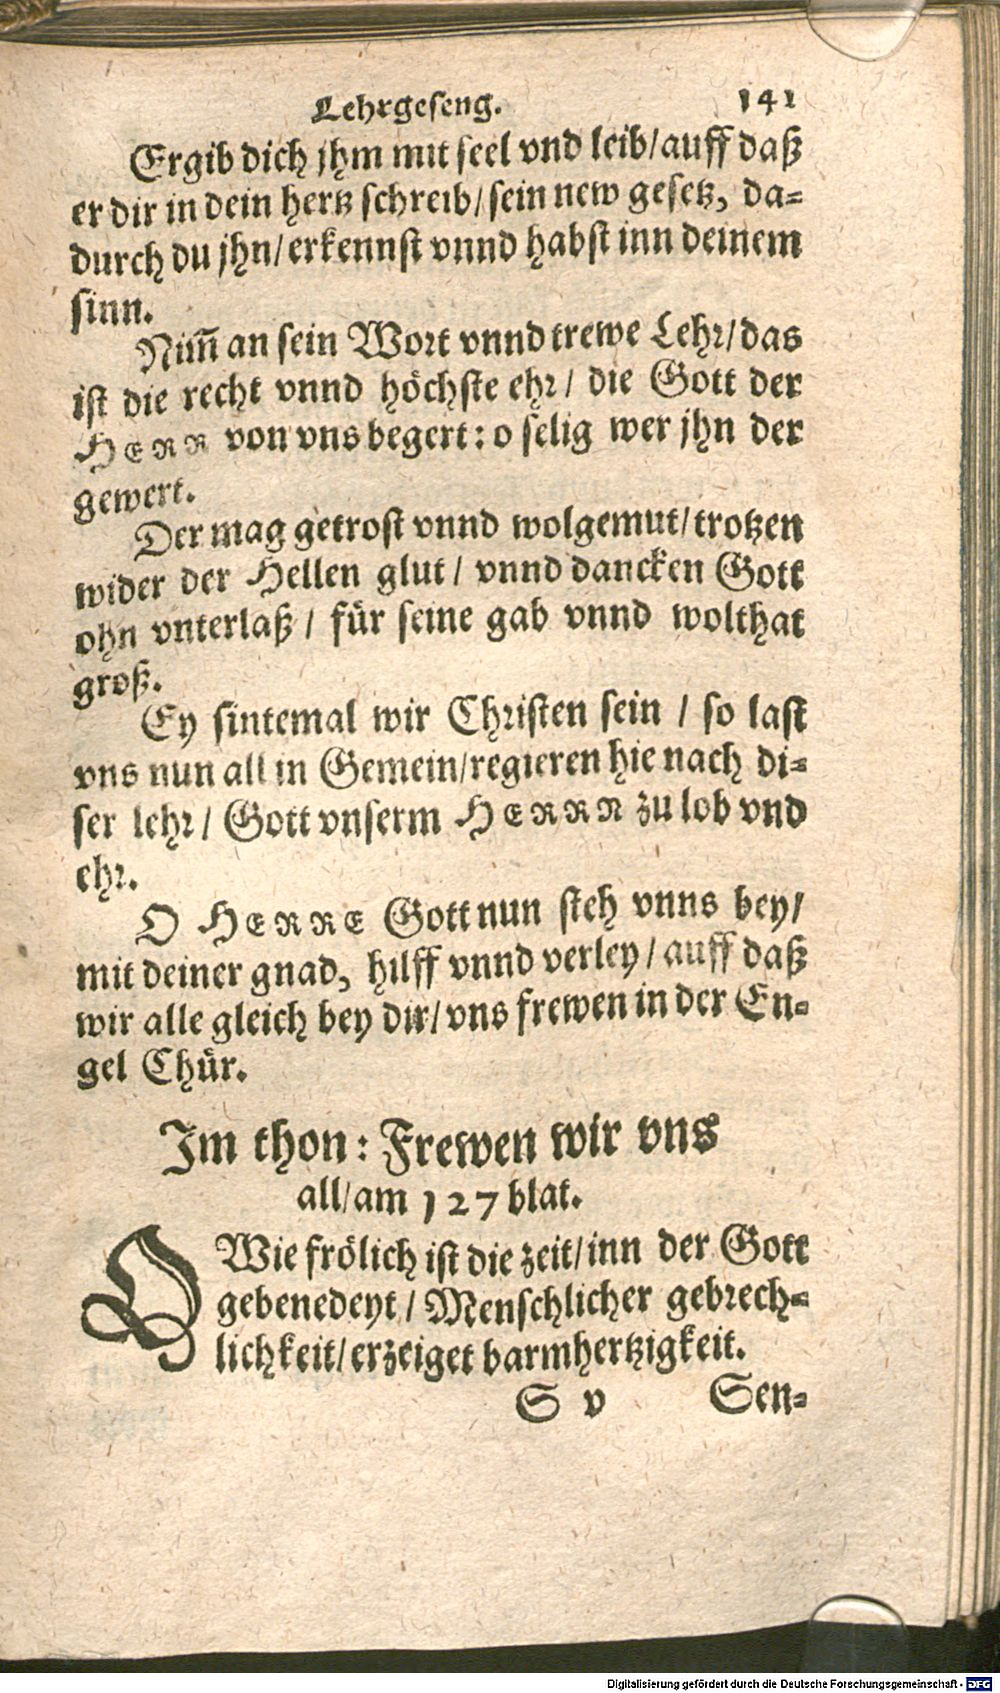 Lehrgeseng. 141
Ergib dich jhm mit seel vnd leib/auff daß
er dir in dein hertz schreib/sein new gesetz, da-
durch du jhn/erkennst vnnd habst inn deinem
sinn.
Nim̃ an sein Wort vnnd trewe Lehr/das
ist die recht vnnd höchste ehr/ die Gott der
HERR von vns begert: o selig wer jhn der
gewert.
Der mag getrost vnnd wolgemut/trotzen
wider der Hellen glut/ vnnd dancken Gott
ohn vnterlaß/ für seine gab vnnd wolthat
groß.
Ey sintemal wir Christen sein / so last
vns nun all in Gemein/regieren hie nach di-
ser lehr/ Gott vnserm HERRN zu lob vnd
ehr.
O HERRE Gott nun steh vnns bey/
mit deiner gnad, hilff vnnd verley/ auff daß
wir alle gleich bey dir/vns frewen in der En-
gel Chür.
Im thon: Frewen wir vns
all/am 127 blat.
O Wie frölich ist die zeit/inn der Gott
gebenedeyt/ Menschlicher gebrech-
lichkeit/erzeiget barmhertzigkeit.
S v Sen-
Digitalisierung gefördert durch die Deutsche Forschungsgemeinschaft - DFG